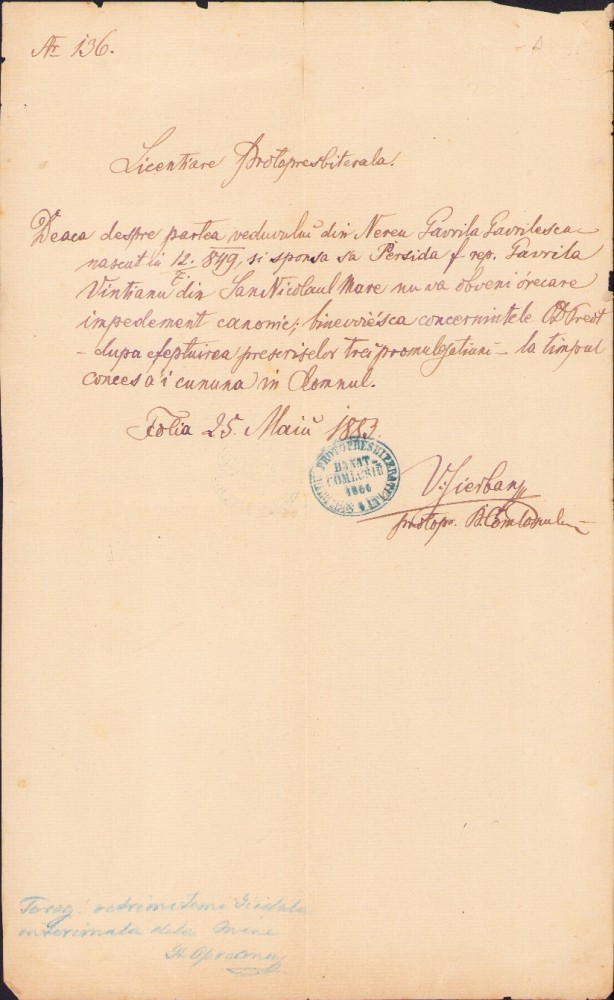 Nr 136.
Licentiare Protopresbiterala.
Deaca despre partea veduvului din Nereu Gavrila Gavrilescu
nascut in 12. 849, si sponsa sa Persida f. rep. Gavrila
Vintianu din SanNicolaul Mare nu va obveni órecare
impedement canonic; binevoiésca concernintele Preot
- dupa efeptuirea prescriselor trei promulgatiuni - la timpul
conces a i cununa in Domnul.
Folia 25. Maiŭ 1883.
PROTOPRESBITERATULUI
BANAT
COMLOSIU
1866
V. Sierban
protop. B. Comlosului
retrimitemi
dela mine